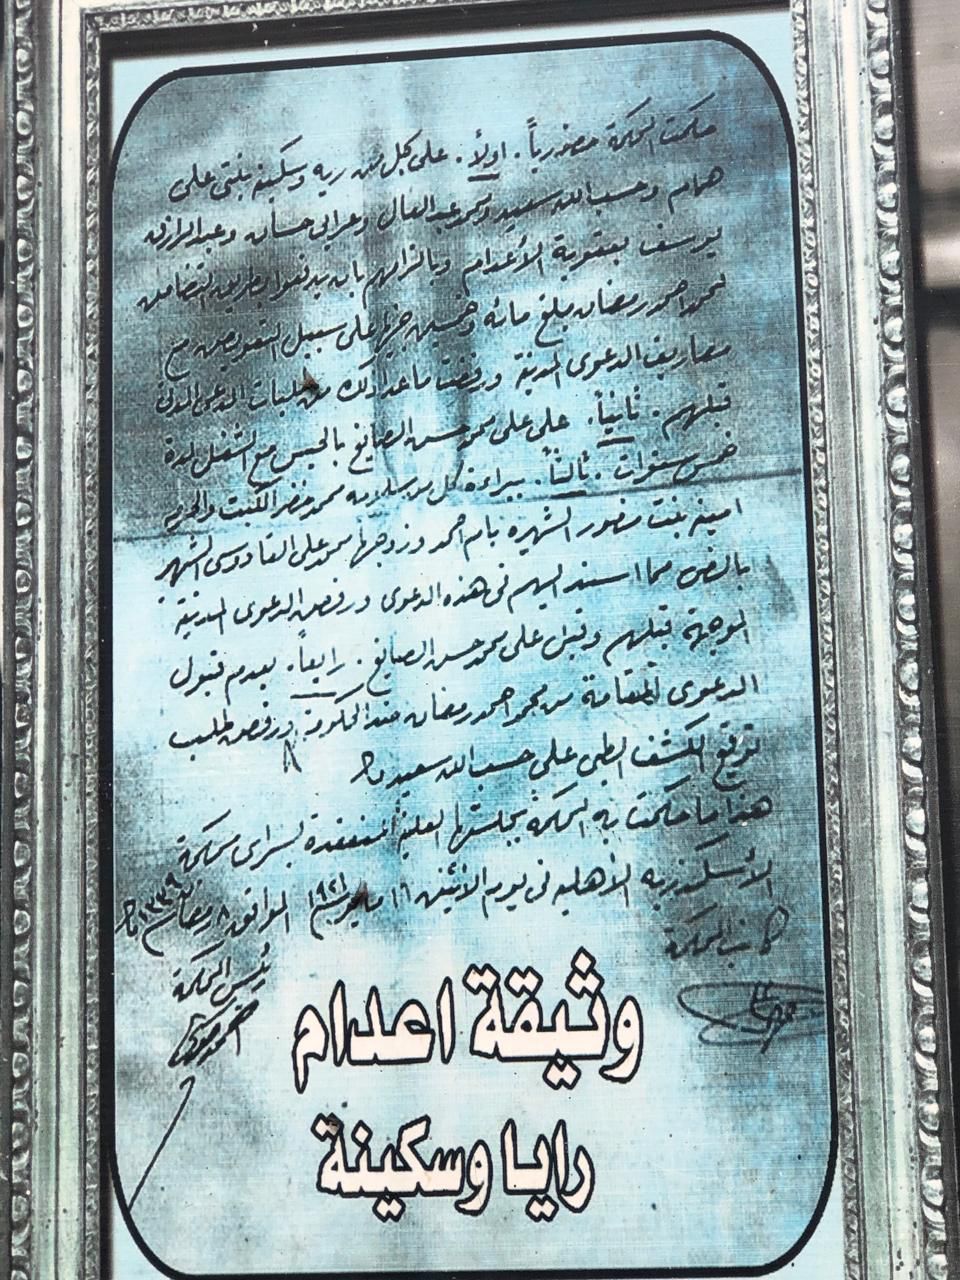 حكمت المحكمة حضورياً. اولاً. على كل من ريه وسكينه بنتى على
همام وحسب الله سعيد ومحمد عبد العال وعرابى حسان وعبد الرازق
يوسف بعقوبة الأعدام وبالزامهم بان يدفعوا بطريق التضامن
لمحمد احمد رمضان مبلغ مائة وخمسين جنيها على سبيل التعويض مع
مصاريف الدعوى المدنية ورفضت ماعدا ذلك من طلبات الدعوى المدنية
قبلهم. ثانياً. على على محمد حسن الصايغ بالحبس مع الشغل لمدة
خمس سنوات. ثالثاً. ببراءة كل من سلامه محمد خضر الكبت والحرمه
امينه بنت منصور الشهيره بام احمد وزوجها محمد على القادوسى الشهير
بالنص مما اسند اليهم فى هذه الدعوى ورفض الدعوى المدنية
الموجهة قبلهم وقبل على محمد حسن الصايغ. رابعاً. بعدم قبول
الدعوى المقامة من محمد احمد رمضان ضد الحكومة ورفض طلب
توقيع الكشف الطبى على حسب الله سعيد
هذا ما حكمت به المحكمة بجلستها العلنية المنعقدة بسراى محكمة
الأسكندرية الأهلية فى يوم الاثنين ١٦ مايو سنة ١٩٢١ الموافق ٨ رمضان سنة ١٣٣٩
كاتب المحكمة
رئيس المحكمة
وثيقة اعدام
رايا وسكينة